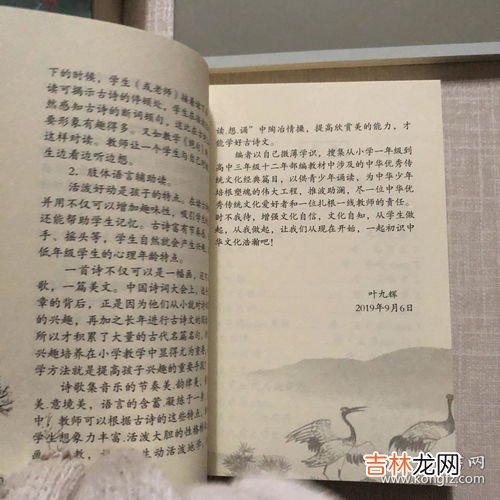 下的时候,学生(或老师)接着读下
读可揭示古诗的停顿处,学生在
然感知古诗的断词顿句,这比在古
要形象有趣得多。又如教学《绝句》
这样对读。教师让一个学生与自己
生边看边听边想。
2. 肢体语言辅助读。
活泼好动是孩子的特点。在古
并用不仅可以增加趣味性,吸引学生的
还能帮助学生记忆。古诗富有节奏感
手、摇头等,学生自然就会产生兴趣
低年级学生的心理年龄特点。
一首诗不仅可以是一幅画,还可
歌,一篇美文。中国诗词大会上,选
章的背后,正是因为他们从小就对诗
的兴趣,再加之长年进行古诗文的
所以才积累了大量的古代名篇名句,
兴趣培养在小学教学中显得尤为重要
学方法就是提高孩子兴趣的重要手段
诗歌集音乐的节奏美、韵律美、
美、意境美,语言的含蓄、凝练于一
中,教师可以根据古诗的这些特点,
学生想象力丰富、活泼大胆的性格
教,
生动活泼地学,
读、想、诵”中陶冶情操,提高欣赏美的能力,才
能学好古诗文。
编者以自己微薄学识,搜集从小学一年级到
高中三年级十二年部编教材中涉及的中华优秀传
统文化经典篇目,以供青少年诵读,为中华少年
培根塑魂的伟大工程,推波助澜,尽一位中华优
秀传统文化爱好者和一位扎根一线教师的责任。
时不我待,增强文化自信,文化自知,从学生做
起,从我做起,让我们从现在开始,一起初识中
华文化浩瀚吧!
叶九辉
2019年9月6日
吉林龙网
www.kongfz.com